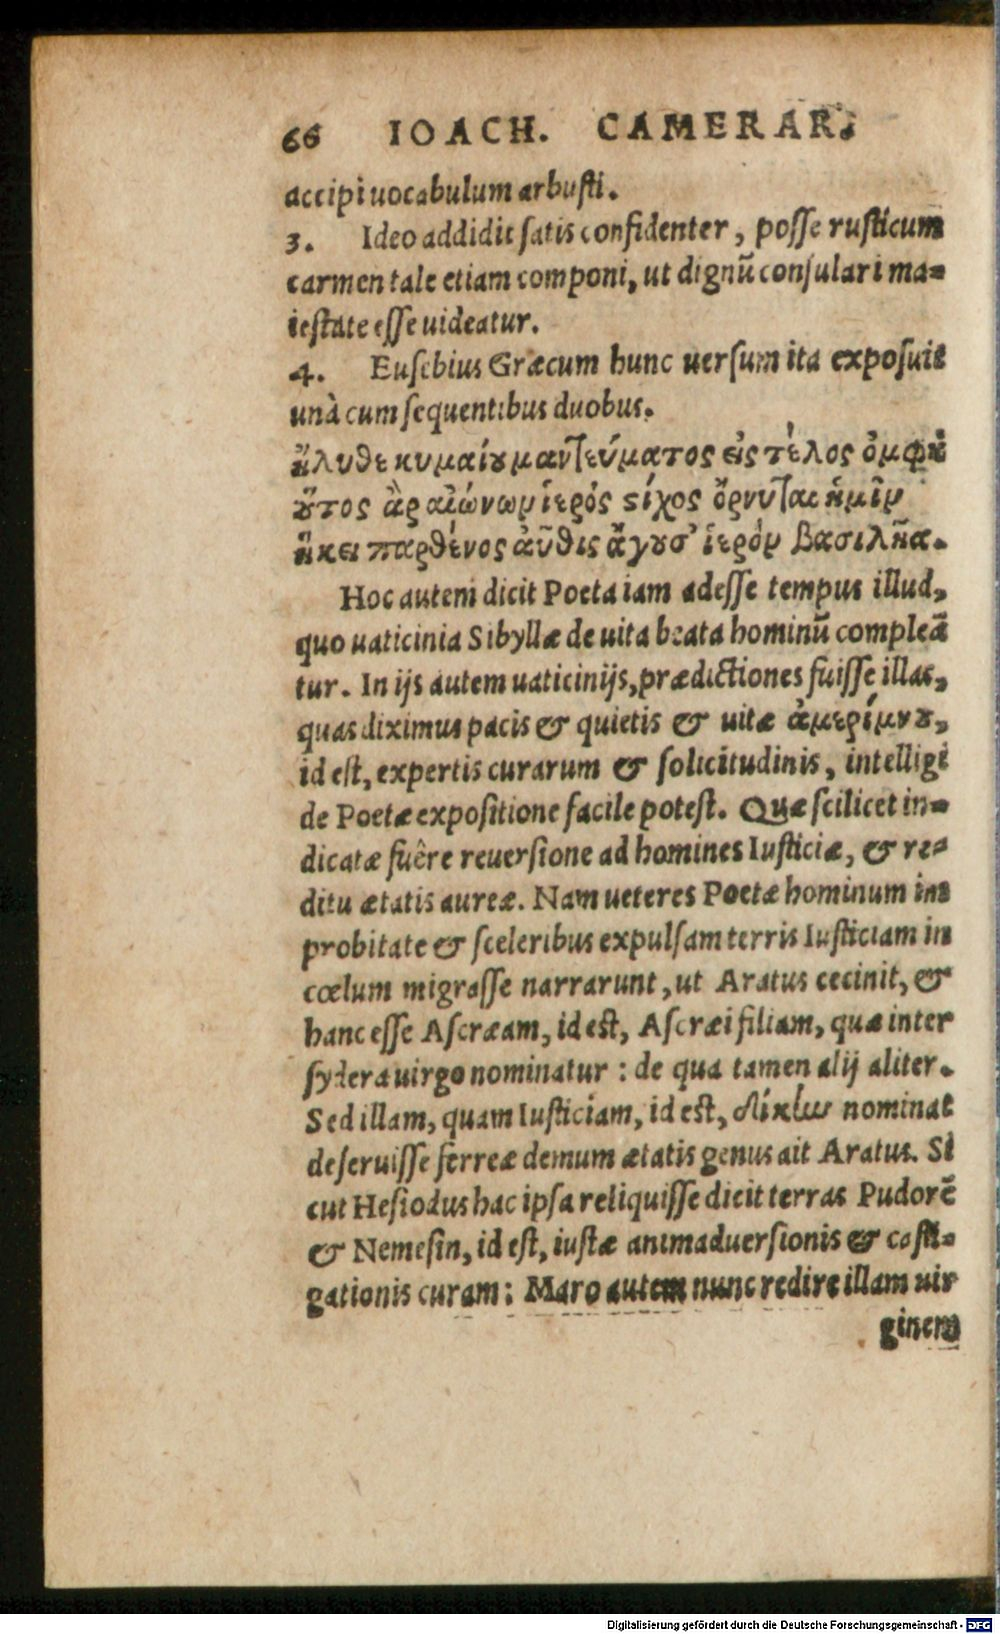 66 IOACH. CAMERAR.
accipi uocabulum arbusti.
3. Ideo addidit satis confidenter, posse rusticum
carmen tale etiam componi, ut dignũ consulari ma-
iestate esse uideatur.
4. Eusebius Græcum hunc uersum ita exposuit
unà cum sequentibus duobus.
ἤλυθε κυμαίου μαντεύματος εἰς τέλος ὀμφὴ
οὗτος ἂρ αἰώνων ἱερός στίχος ὄρνυται ἡμῖν
ἥκει παρθένος αὖθις ἄγουσ' ἱερὸν βασιλῆα.
Hoc autem dicit Poeta iam adesse tempus illud,
quo uaticinia Sibyllæ de uita beata hominũ compleã
tur. In ijs autem uaticinijs, prædictiones fuisse illas,
quas diximus pacis & quietis & uitæ ἀμερίμνου,
id est, expertis curarum & solicitudinis, intelligi
de Poetæ expositione facile potest. Quæ scilicet in-
dicatæ fuêre reuersione ad homines Iusticiæ, & re-
ditu ætatis aureæ. Nam ueteres Poetæ hominum im
probitate & sceleribus expulsam terris Iusticiam in
cœlum migrasse narrarunt, ut Aratus cecinit, &
hanc esse Ascræam, id est, Ascræi filiam, quæ inter
sydera uirgo nominatur : de qua tamen alij aliter.
Sed illam, quam Iusticiam, id est, δίκην nominat
deseruisse ferreæ demum ætatis genus ait Aratus. Si
cut Hesiodus hac ipsa reliquisse dicit terras Pudorẽ
& Nemesin, id est, iustæ animaduersionis & casti-
gationis curam : Maro autem nunc redire illam uir
ginem
Digitalisierung gefördert durch die Deutsche Forschungsgemeinschaft - DFG